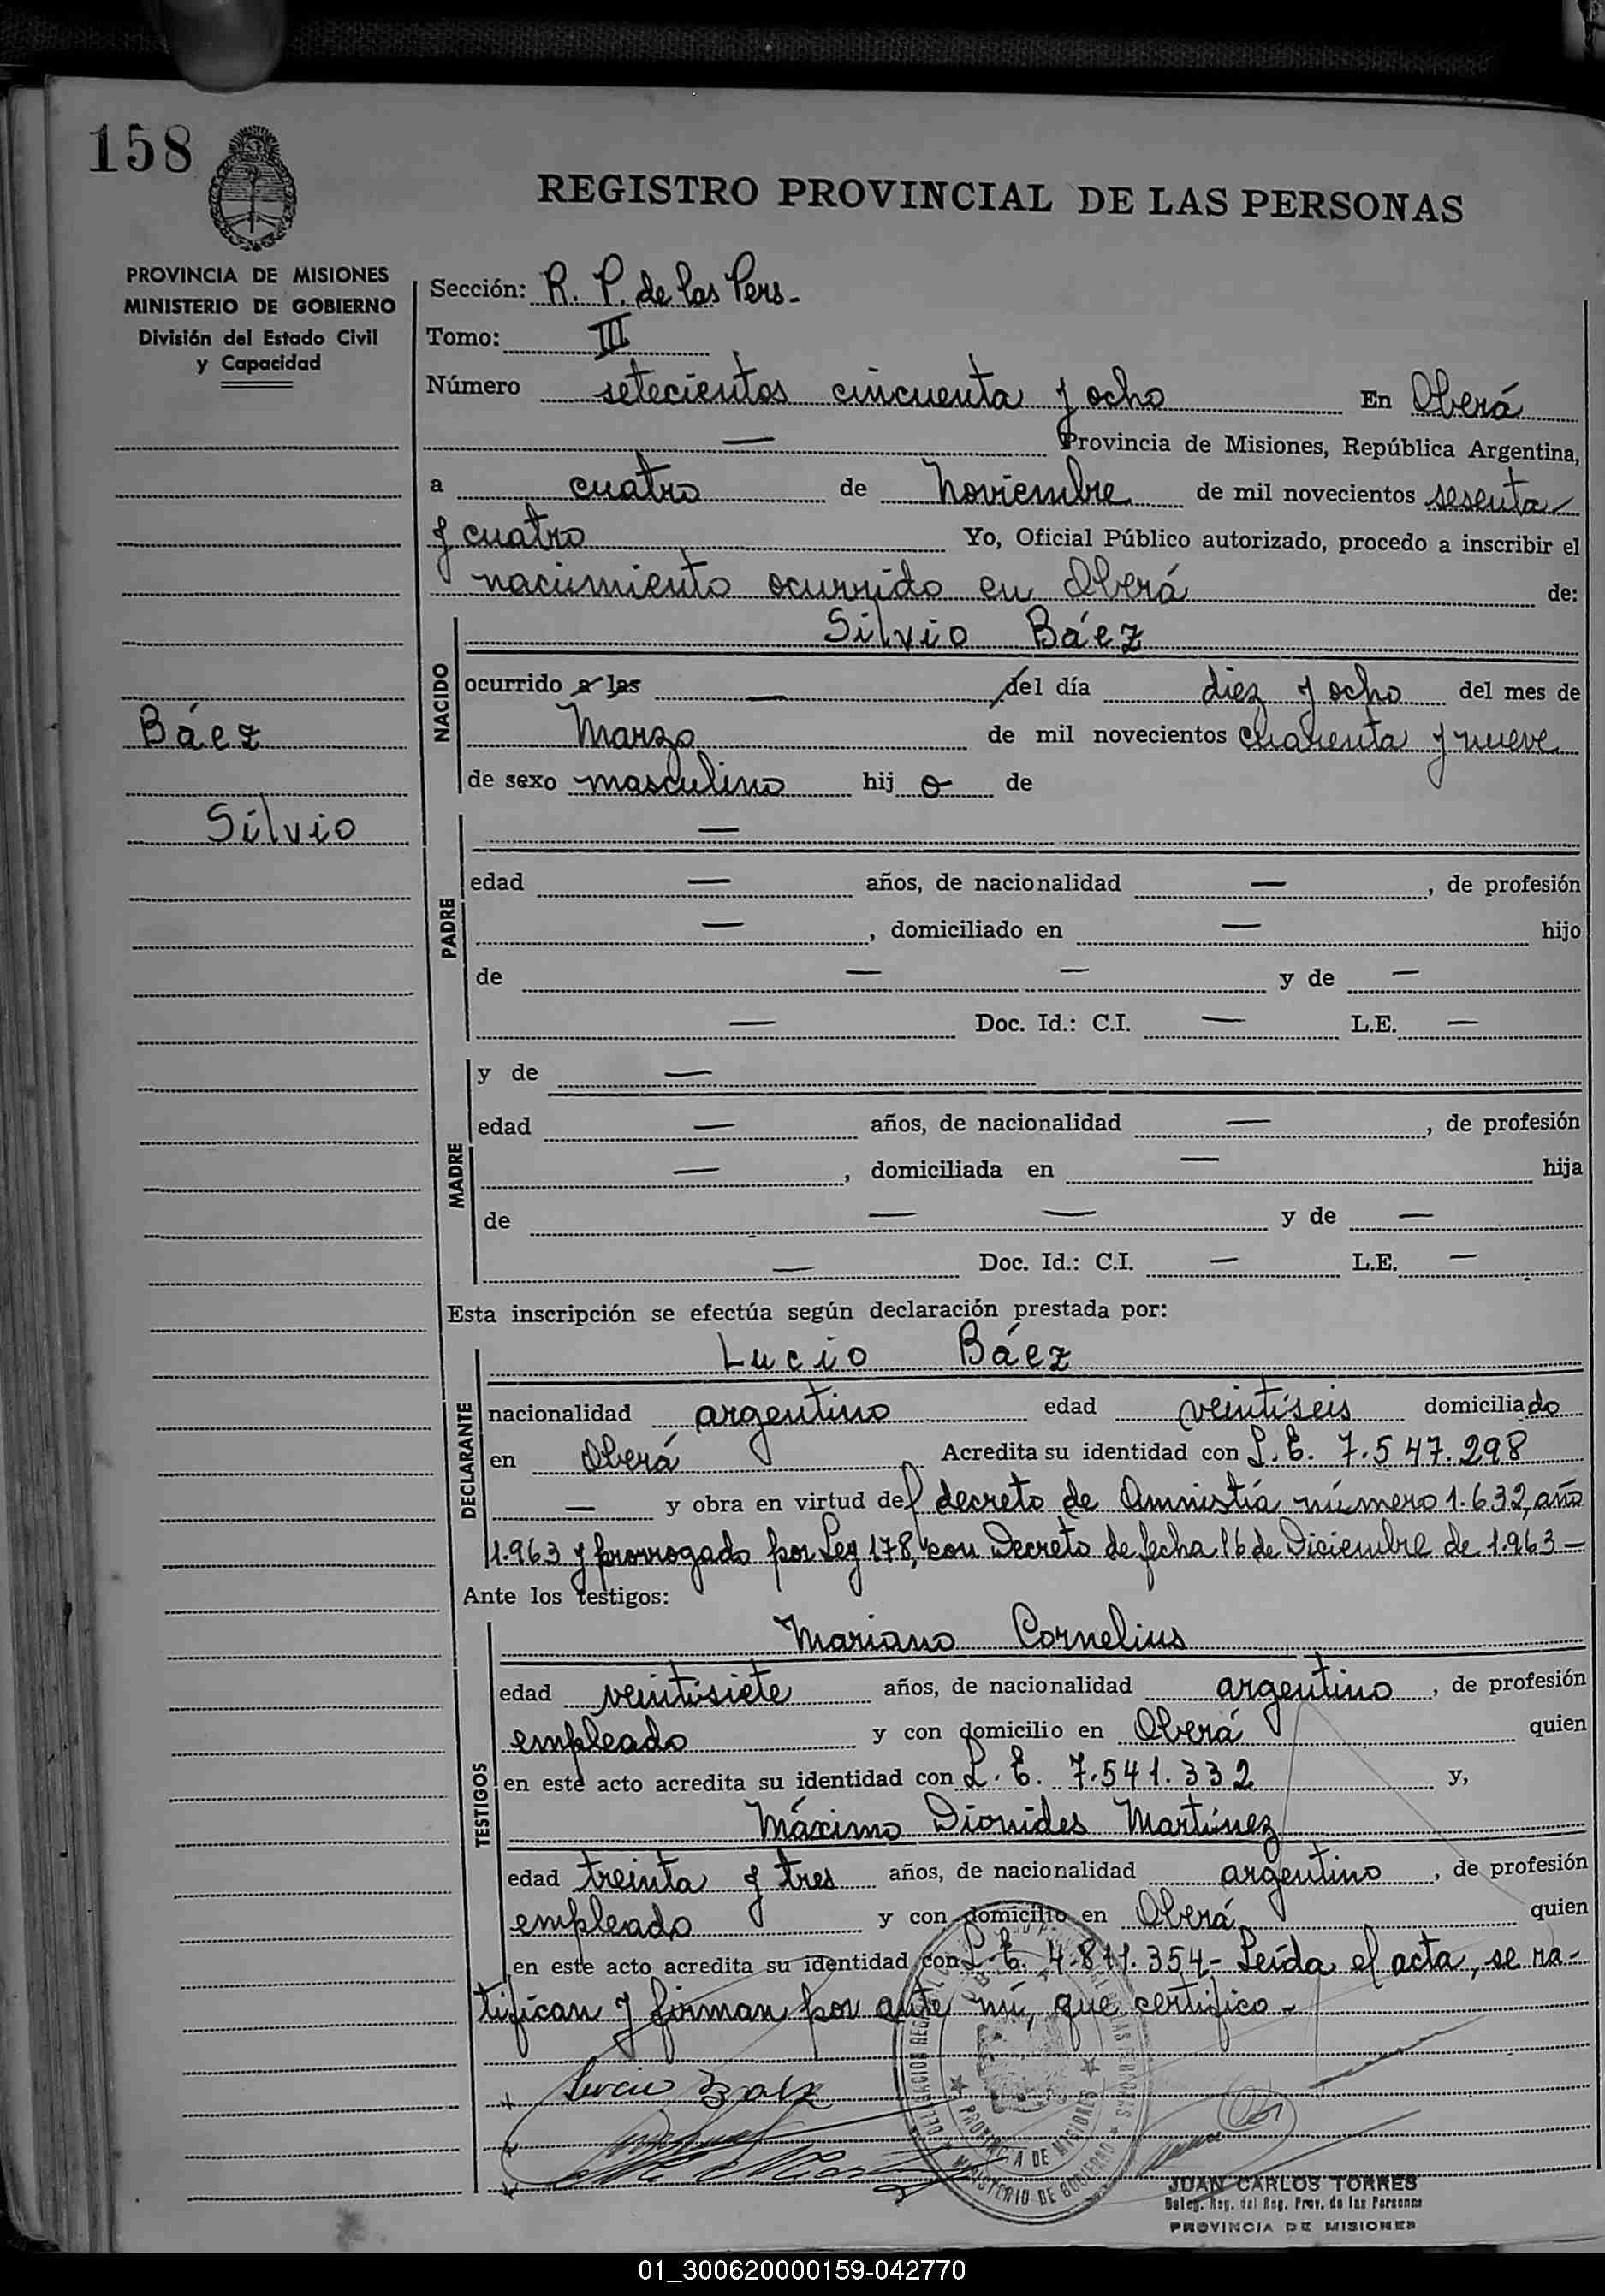 158
REGISTRO PROVINCIAL DE LAS PERSONAS
PROVINCIA DE MISIONES
MINISTERIO DE GOBIERNO
División del Estado Civil
y Capacidad
Sección: R. P. de las Pers.-
Tomo: III
Número setecientos cincuenta y ocho En Oberá
— Provincia de Misiones, República Argentina,
a cuatro de Noviembre de mil novecientos sesenta
y cuatro Yo, Oficial Público autorizado, procedo a inscribir el
nacimiento ocurrido en Oberá de:
NACIDO
Silvio Báez
ocurrido a las — del día diez y ocho del mes de
Marzo de mil novecientos cuarenta y nueve
de sexo masculino hij o de
Báez
Silvio
PADRE
—
edad — años, de nacionalidad —, de profesión
—, domiciliado en — hijo
de — — y de —
— Doc. Id.: C.I. — L.E. —
MADRE
y de —
edad — años, de nacionalidad —, de profesión
—, domiciliada en — hija
de — — y de —
— Doc. Id.: C.I. — L.E. —
Esta inscripción se efectúa según declaración prestada por:
DECLARANTE
Lucio Báez
nacionalidad argentino edad veintiseis domiciliado
en Oberá Acredita su identidad con L. E. 7.547.298
— y obra en virtud del decreto de Amnistía número 1.632, año
1.963 y prorrogado por Ley 178, con Decreto de fecha 16 de Diciembre de 1.963 —
Ante los testigos:
TESTIGOS
Mariano Cornelius
edad veintisiete años, de nacionalidad argentino, de profesión
empleado y con domicilio en Oberá quien
en este acto acredita su identidad con L. E. 7.541.332 y,
Máximo Dionides Martínez
edad treinta y tres años, de nacionalidad argentino, de profesión
empleado y con domicilio en Oberá quien
en este acto acredita su identidad con L. E. 4.811.354.- Leída el acta, se ra-
tifican y firman por ante mí, que certifico.-
Lucio Baez
PROVINCIA DE MISIONES
MINISTERIO DE GOBIERNO
JUAN CARLOS TORRES
Deleg. Reg. del Reg. Prov. de las Personas
PROVINCIA DE MISIONES
01_300620000159-042770